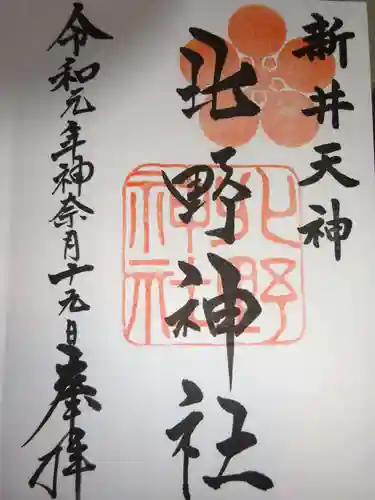 新井天神
北野神社
北野
神社
令和元年神奈月十九日奉拝